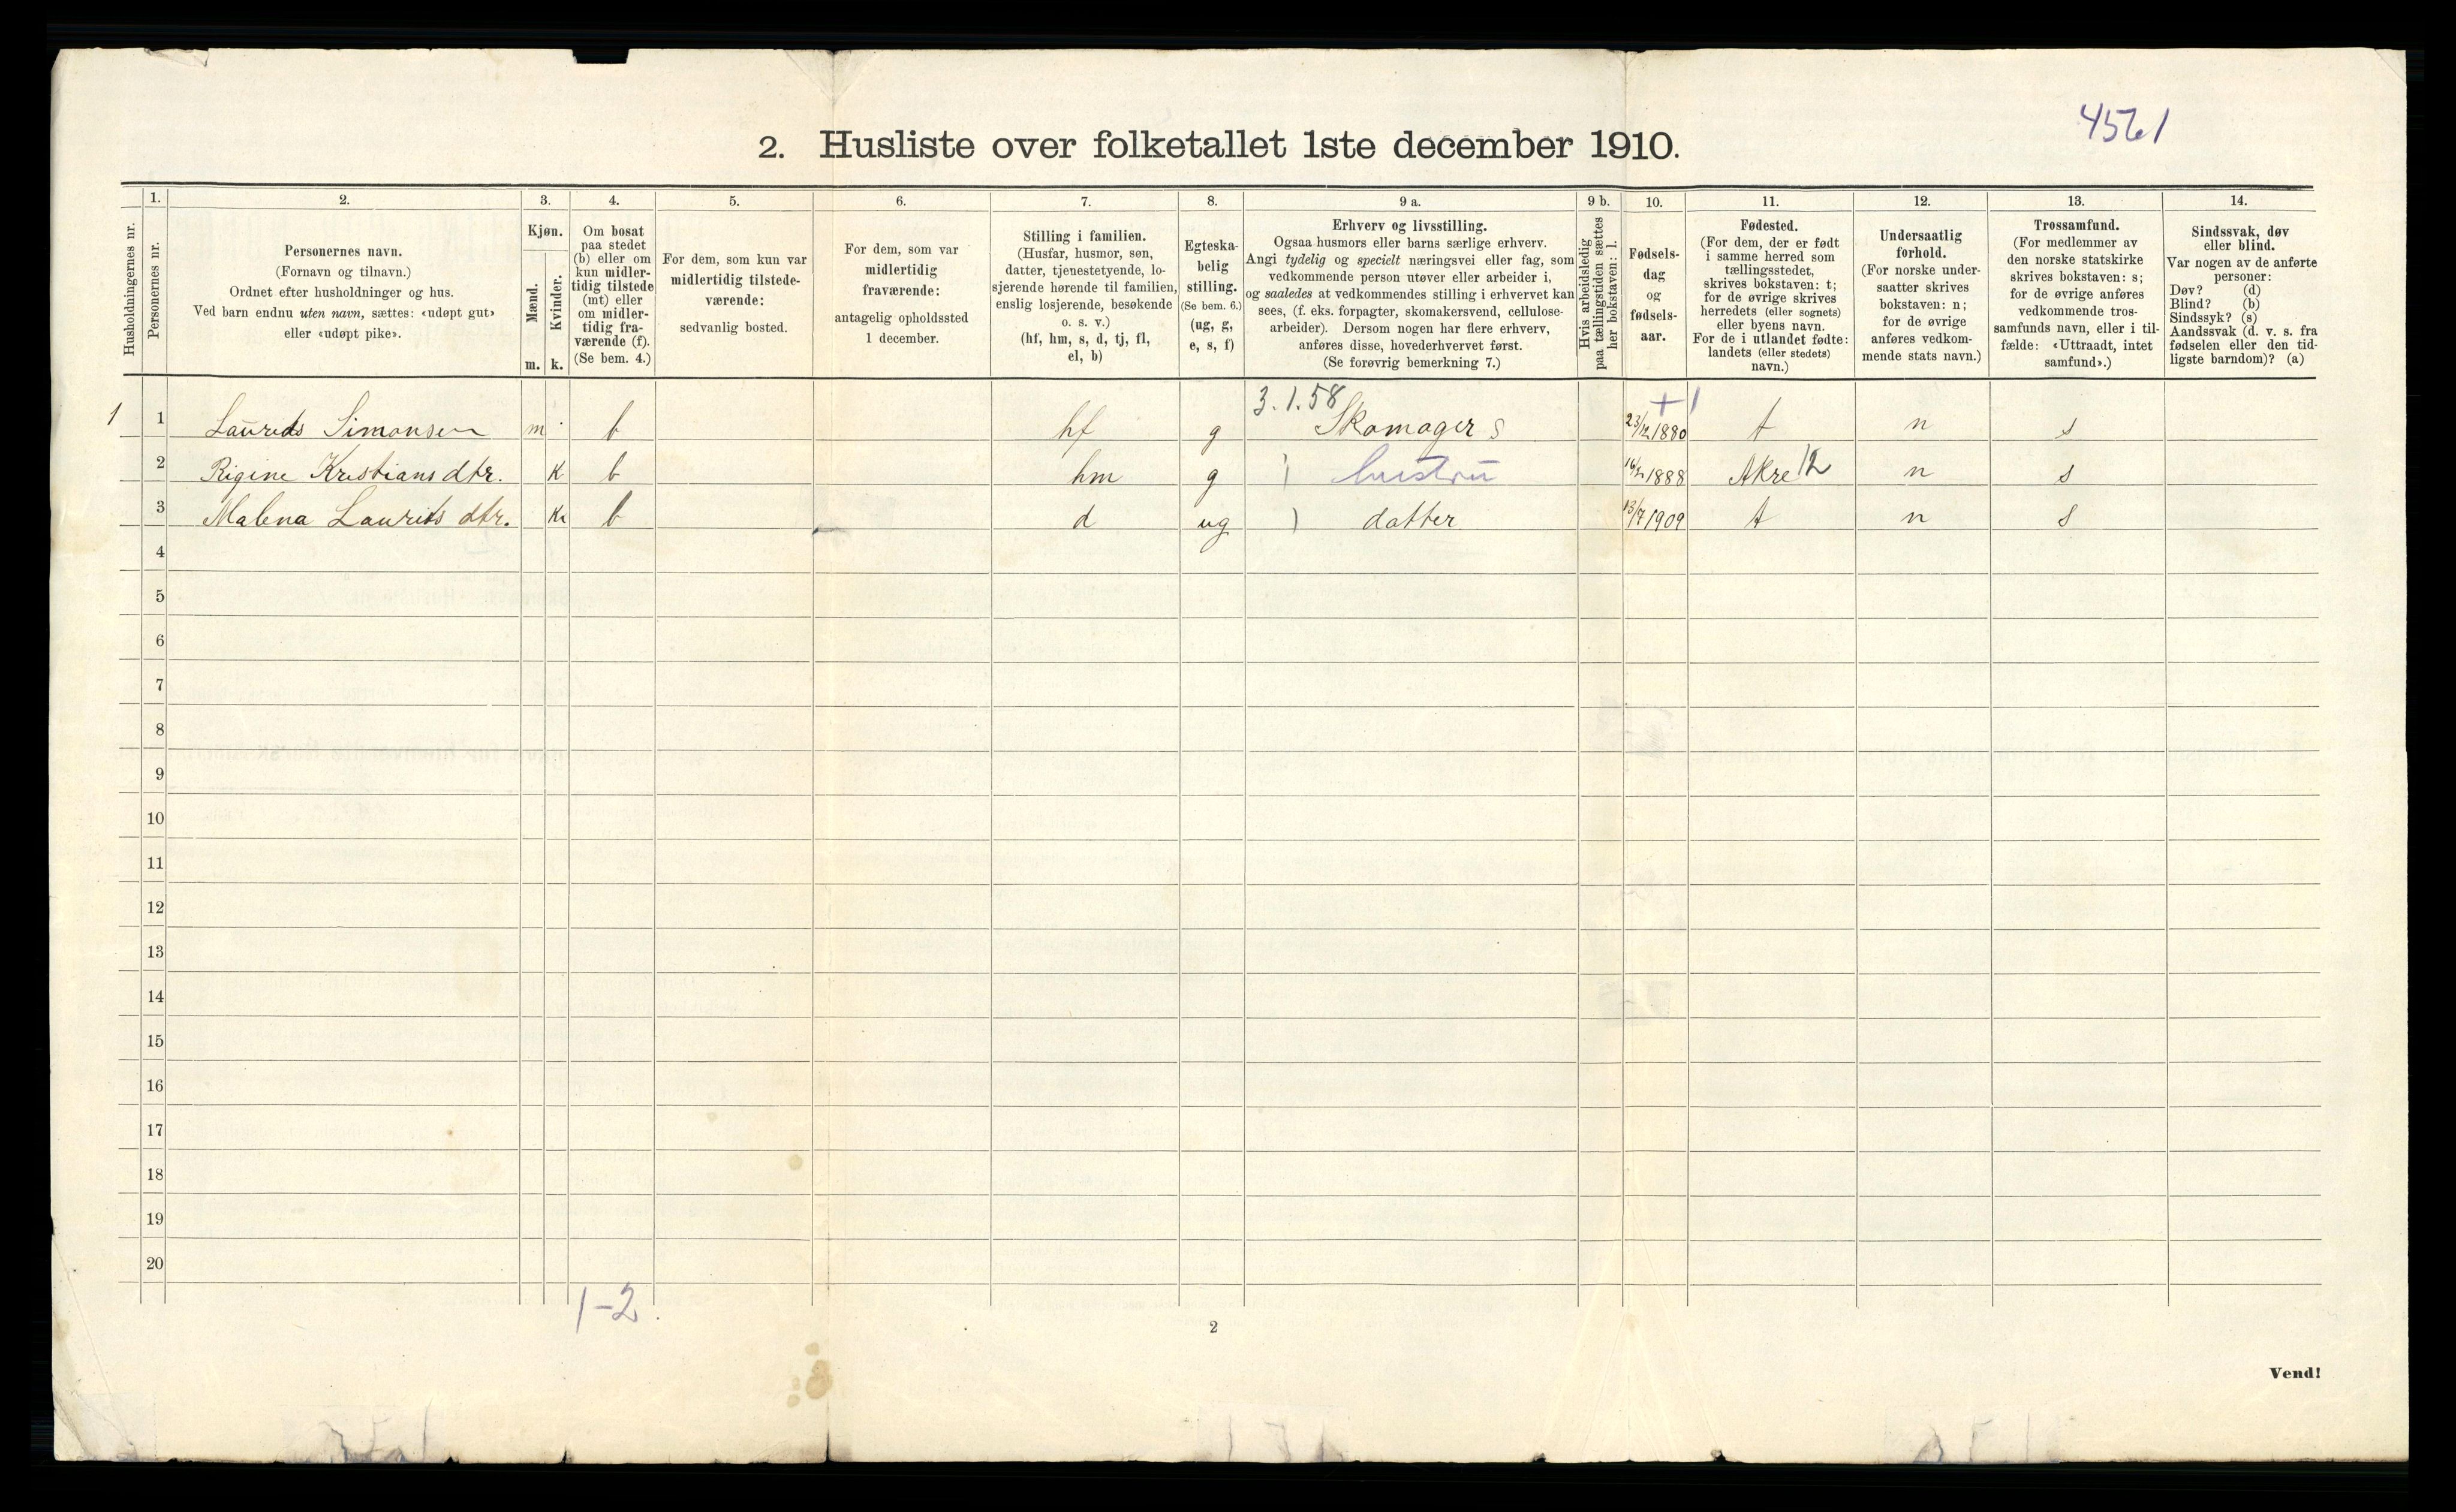 4561
2. Husliste over folketallet 1ste december 1910.
Husholdningernes nr.
1.
Personernes nr.
2.
Personernes navn.
(Fornavn og tilnavn.)
Ordnet efter husholdninger og hus.
Ved barn endnu uten navn, sættes: «udøpt gut»
eller «udøpt pike».
3.
Kjøn.
Mænd.
Kvinder.
m. k.
4.
Om bosat
paa stedet
(b) eller om
kun midler-
tidig tilstede
(mt) eller
om midler-
tidig fra-
værende (f).
(Se bem. 4.)
5.
For dem, som kun var
midlertidig tilstede-
værende:
sedvanlig bosted.
6.
For dem, som var
midlertidig
fraværende:
antagelig opholdssted
1 december.
7.
Stilling i familien.
(Husfar, husmor, søn,
datter, tjenestetyende, lo-
sjerende hørende til familien,
enslig losjerende, besøkende
o. s. v.)
(hf, hm, s, d, tj, fl,
el, b)
8.
Egteska-
belig
stilling.
(Se bem. 6.)
(ug, g,
e, s, f)
9 a.
Erhverv og livsstilling.
Ogsaa husmors eller barns særlige erhverv.
Angi tydelig og specielt næringsvei eller fag, som
vedkommende person utøver eller arbeider i,
og saaledes at vedkommendes stilling i erhvervet kan
sees, (f. eks. forpagter, skomakersvend, cellulose-
arbeider). Dersom nogen har flere erhverv,
anføres disse, hovederhvervet først.
(Se forøvrig bemerkning 7.)
9 b.
Hvis arbeidsledig
paa tællingstiden sættes
her bokstaven: l.
10.
Fødsels-
dag
og
fødsels-
aar.
11.
Fødested.
(For dem, der er født
i samme herred som
tællingsstedet,
skrives bokstaven: t;
for de øvrige skrives
herredets (eller sognets)
eller byens navn.
For de i utlandet fødte:
landets (eller stedets)
navn.)
12.
Undersaatlig
forhold.
(For norske under-
saatter skrives
bokstaven: n;
for de øvrige
anføres vedkom-
mende stats navn.)
13.
Trossamfund.
(For medlemmer av
den norske statskirke
skrives bokstaven: s;
for de øvrige anføres
vedkommende tros-
samfunds navn, eller i til-
fælde: «Uttraadt, intet
samfund».)
14.
Sindssvak, døv
eller blind.
Var nogen av de anførte
personer:
Døv? (d)
Blind? (b)
Sindssyk? (s)
Aandssvak (d. v. s. fra
fødselen eller den tid-
ligste barndom)? (a)
3.1.58 + 1
1 1 Laurids Simonsen m b hf g Skomager s 23/12 1880 t n s
2 Rigine Kristiansdtr. k b hm g hustru 1888 Akre 12 n s
3 Malena Laurits dtr. k b d ug datter 13/7 1909 t n s
4
5
6
7
8
9
10
11
12
13
14
15
16
17
18
19
20
1-2
2
Vend!